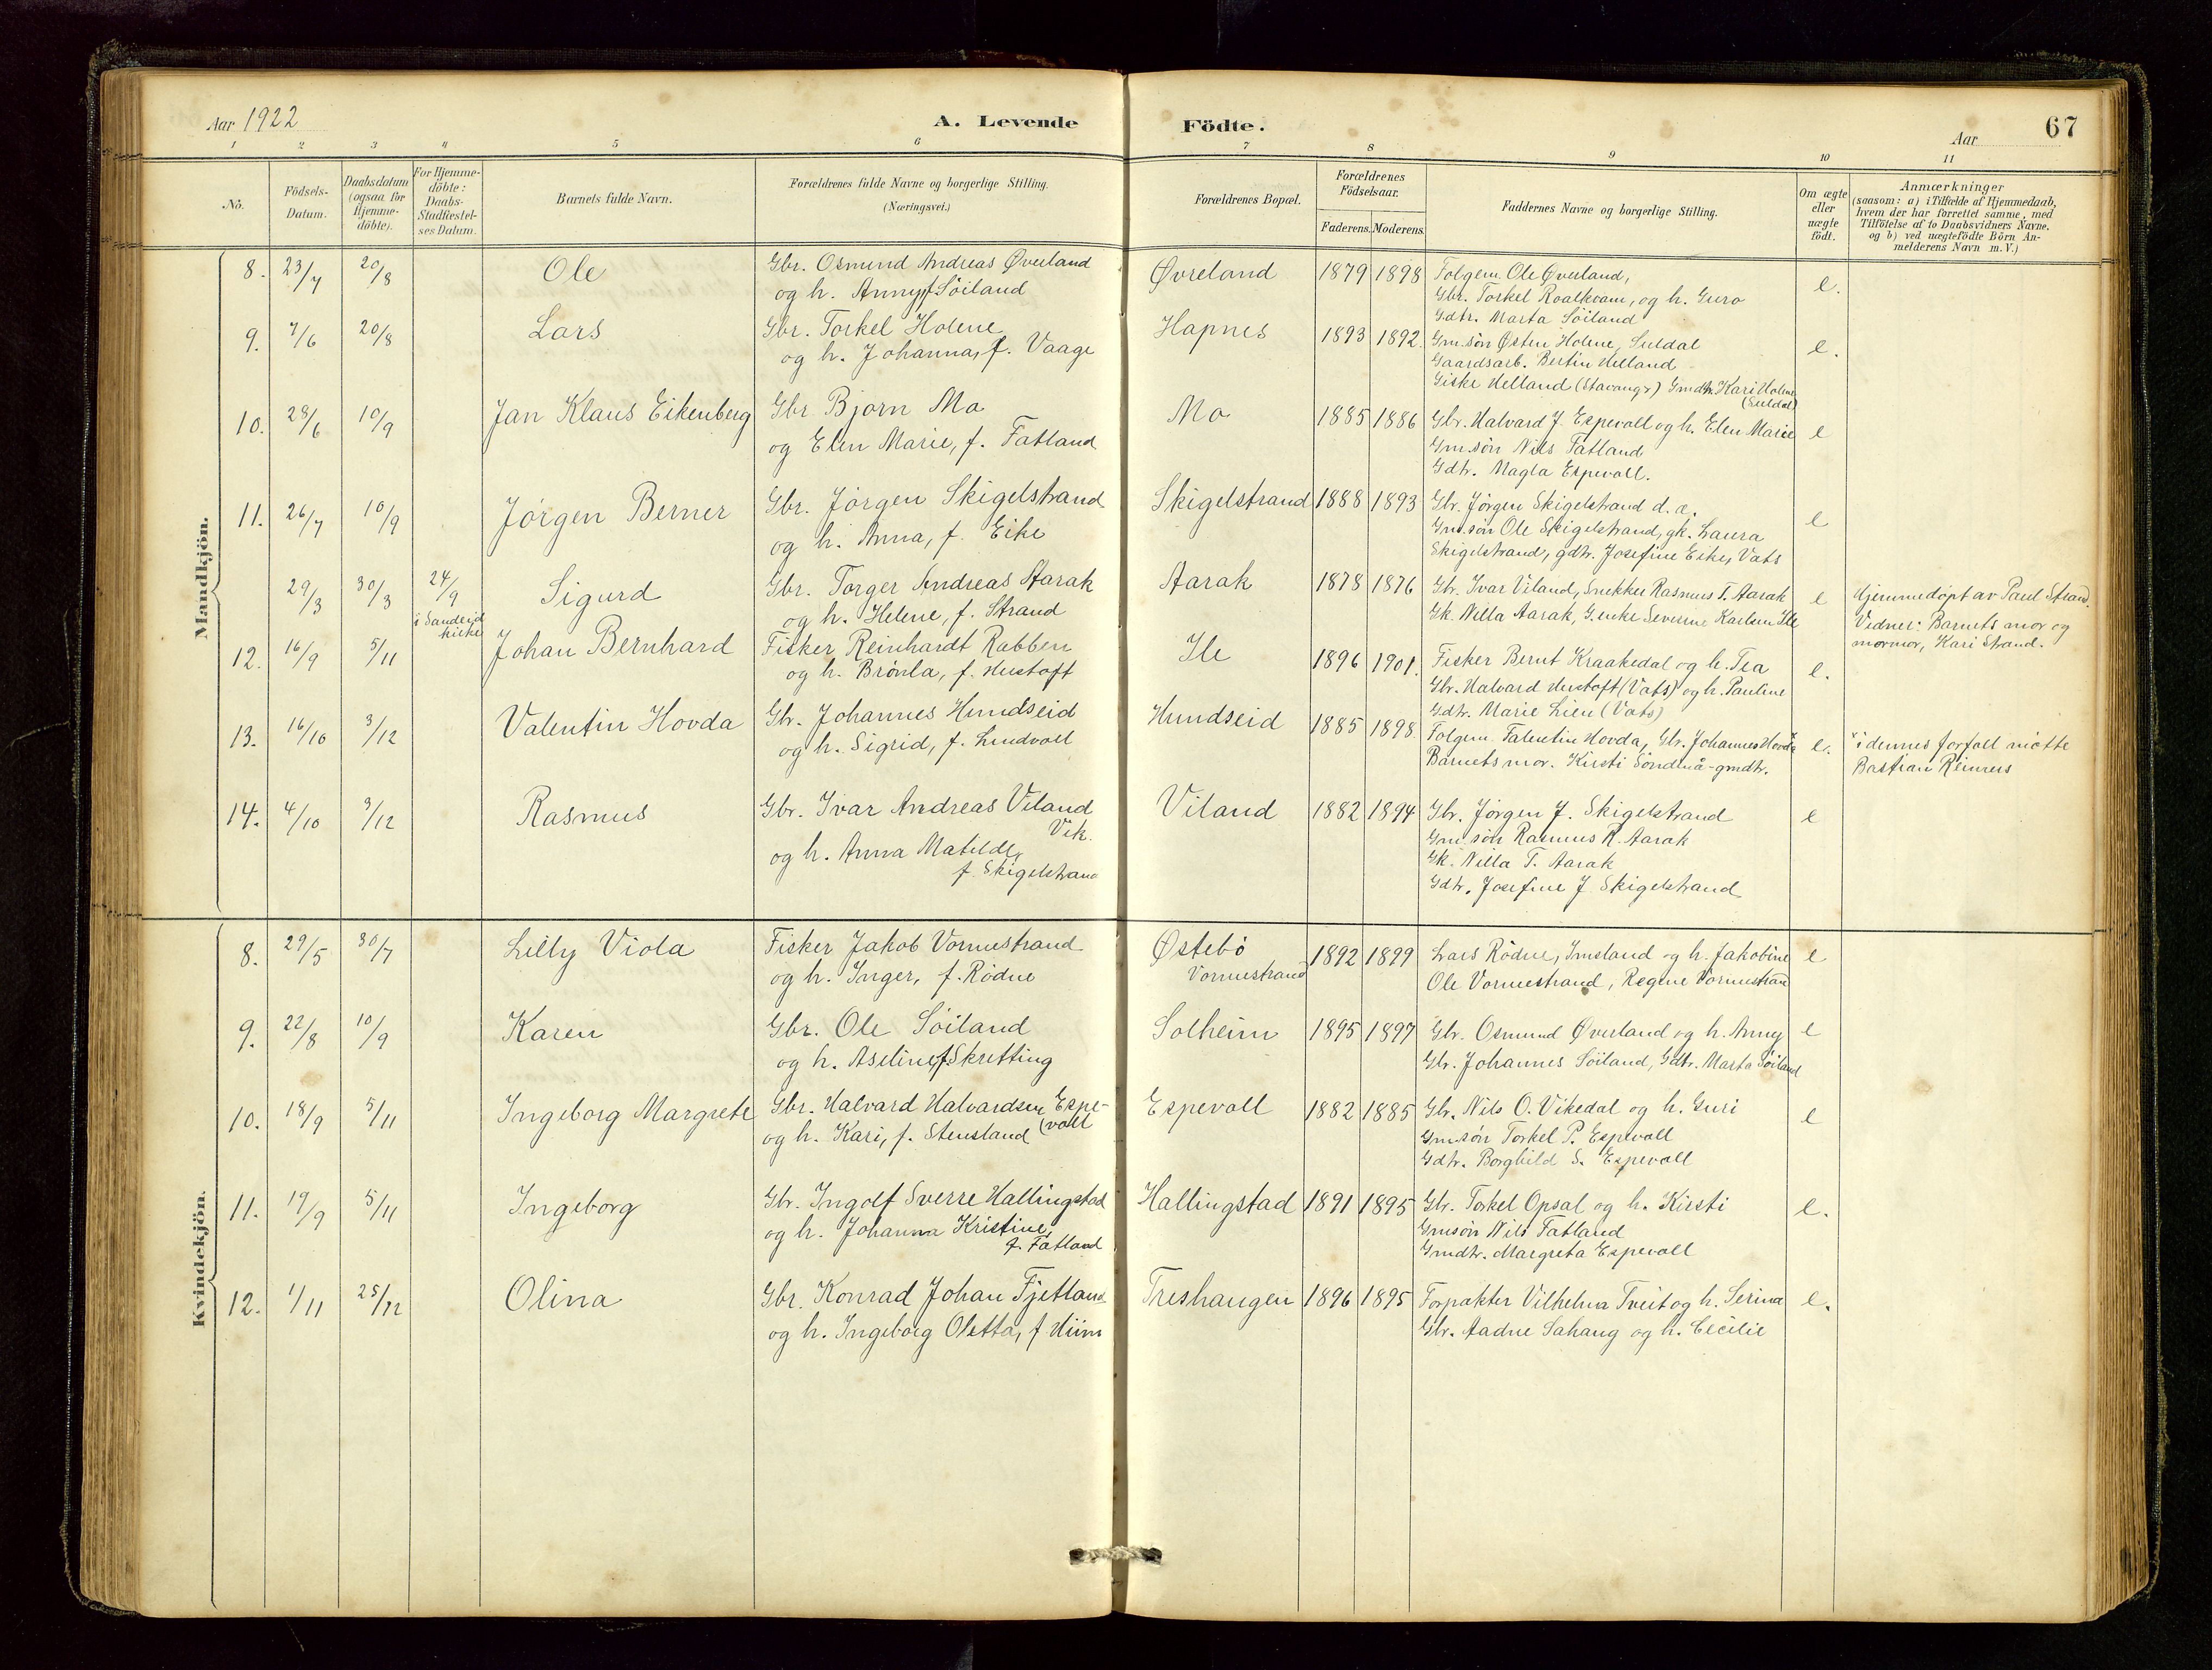 Aar 1922
A. Levende
Födte.
Aar
67
1 2 3 4 5 6 7 8 9 10 11
No.
Födsels-
Datum.
Daabsdatum
(ogsaa for
Hjemme-
döbte).
For Hjemme-
döbte:
Daabs-
Stadfæstel-
ses Datum.
Barnets fulde Navn.
Forældrenes fulde Navne og borgerlige Stilling.
(Næringsvei.)
Forældrenes Bopæl.
Forældrenes
Födselsaar.
Faderens. Moderens.
Faddernes Navne og borgerlige Stilling.
Om ægte
eller
uægte
födt.
Anmærkninger
(saasom: a) i Tilfælde af Hjemmedaab,
hvem der har forrettet samme, med
Tilföielse af to Daabsvidners Navne.
og b) ved uægtefödte Börn An-
melderens Navn m. V.)
Mandkjön.
8. 23/7 20/8 Ole Gbr. Osmund Andreas Øverland Øvreland 1879 1898 Folgem. Ole Øverland, e.
og h. Anny, f. Söiland Gbr. Torkel Roalkvam, og h. Guro
Gdtr. Marta Söiland
9. 7/6 20/8 Lars Gbr. Torkel Holene Hapnes 1893 1892. Gm.sön Østen Holene, Suldal e.
og h. Johanna, f. Vaage Gaardsarb. Bertin Helland
Giske Helland (Stavangr) Gmdtr. Kari Holene
(Suldal)
10. 28/6 10/9 Jan Klaus Eikenberg Gbr Bjorn Mo Mo 1885 1886 Gbr. Halvard J. Espevoll og h. Elen Marie e
og Elen Marie, f. Fatland Gm.sön Nils Fatland
Gdtr. Magla Espevoll.
11. 26/7 10/9 Jörgen Berner Gbr. Jörgen Skigelstrand Skigelstrand 1888 1893 Gbr. Jörgen Skigelstrand d. æ. e
og h. Anna, f. Eike Gm.sön Ole Skigelstrand, gk. Laura
Skigelstrand, gdtr. Josefine Eike, Vats
29/3 30/3 24/9 Sigurd Gbr. Torger Andreas Aarak Aarak 1878 1876 Gbr. Ivar Viland, Snekker Rasmus T. Aarak e Hjemmedöpt av Paul Strand.
i Sandeid
kirke og h. Helene, f. Strand Gk. Nella Aarak, G.enke Severine Karlsen Ile Vidner: Barnets mor og
mormor, Kari Strand.
12. 16/9 5/11 Johan Bernhard Fisker Reinhardt Rabben Ile 1896 1901. Fisker Bernt Kraakedal og h. Tea e.
og h. Brönla, f. Hustoft Gbr. Halvard Hustoft (Vats) og h. Pauline
Gdtr. Marie Lien (Vats)
13. 16/10 3/12 Valentin Hovda Gbr. Johannes Hundseid Hundseid 1885 1898. Folgem. Falentin Hovda, Gbr. Johannes Hovda x e. x i dennes forfall mötte
og h. Sigrid, f. Lundvoll Barnets mor. Kirsti Söndenå - gmdtr. Bastian Reimers
14. 4/10 3/12 Rasmus Gbr. Ivar Andreas Viland Viland 1882 1894 Gbr. Jörgen J. Skigelstrand e
Vik. Gm.sön Rasmus R. Aarak
og h. Anna Matilde, Gk. Nella T. Aarak
f. Skigelstrand Gdtr. Josefine J. Skigelstrand
Kvindekjön.
8. 29/5 30/7 Lilly Viola Fisker Jakob Vormestrand Østebö 1892 1899 Lars Rödne, Imsland og h. Jakobine e
og h. Inger, f. Rödne Vormestrand Ole Vormestrand, Regine Vormestrand
9. 22/8 10/9 Karen Gbr. Ole Söiland Solheim 1895 1897 Gbr. Osmund Øverland og h. Anny e
og h. Aseline, f. Skretting Gbr. Johannes Söiland, Gdtr. Marta Söiland
10. 18/9 5/11 Ingeborg Margrete Gbr. Halvard Halvardsen Espe- Espevoll 1882 1885 Gbr. Nils O. Vikedal og h. Guri e
(voll
og h. Kari, f. Stensland Gm.sön Torkel P. Espevoll
Gdtr. Borghild S. Espevoll
11. 19/9 5/11 Ingeborg Gbr. Ingolf Sverre Hallingstad Hallingstad 1891 1895 Gbr. Torkel Opsal og h. Kirsti e.
og h. Johanna Kristine, Gmsön Nils Fatland
f. Fatland Gmdtr. Margreta Espevoll
12. 1/11 25/12 Olina Gbr. Konrad Johan Fjetland Treshaugen 1896 1895 Forpakter Vilhelm Tveit og h. Serina e.
og h. Ingeborg Oletta, f Hiim Gbr. Aadne Sahaug og h. Cecilie